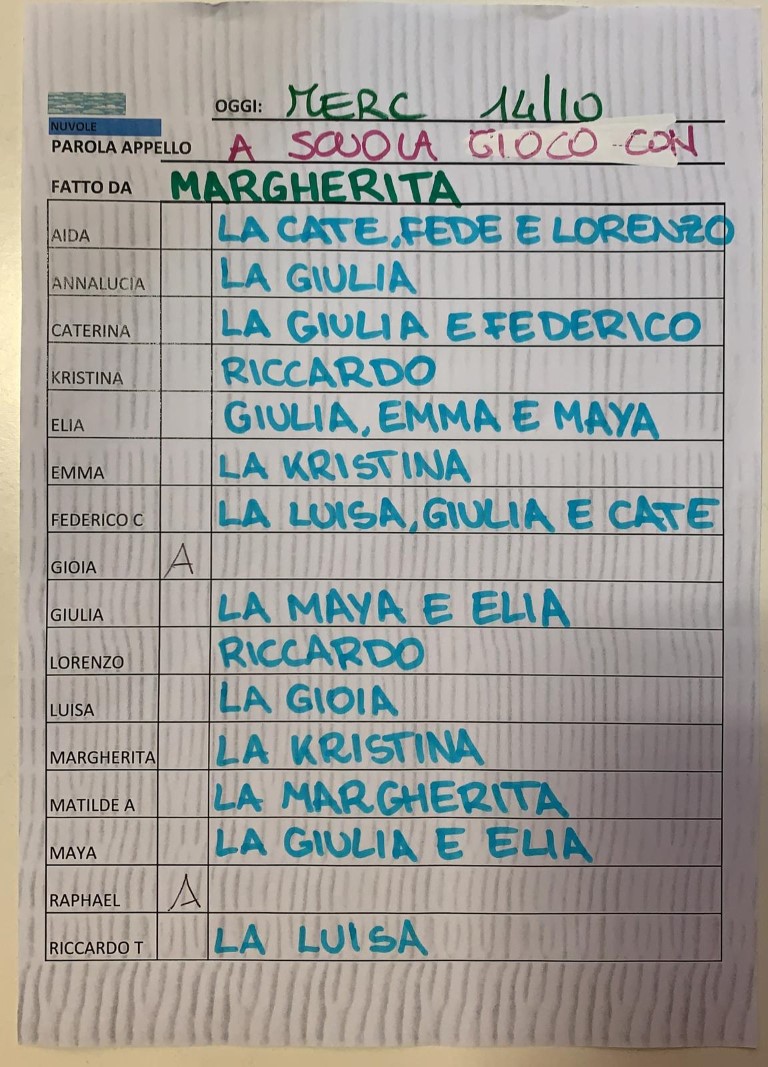 OGGI: MERC 14/10
NUVOLE
PAROLA APPELLO A SCUOLA GIOCO CON
FATTO DA MARGHERITA
AIDA LA CATE, FEDE E LORENZO
ANNALUCIA LA GIULIA
CATERINA LA GIULIA E FEDERICO
KRISTINA RICCARDO
ELIA GIULIA, EMMA E MAYA
EMMA LA KRISTINA
FEDERICO C LA LUISA, GIULIA E CATE
GIOIA A
GIULIA LA MAYA E ELIA
LORENZO RICCARDO
LUISA LA GIOIA
MARGHERITA LA KRISTINA
MATILDE A LA MARGHERITA
MAYA LA GIULIA E ELIA
RAPHAEL A
RICCARDO T LA LUISA